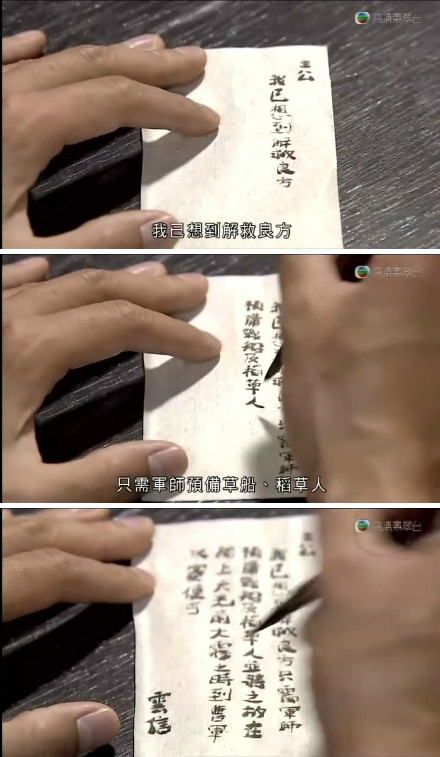 高清翡翠台
主公
我已想到解救良方
我已想到解救良方
高清翡翠台
我已想
只需軍師
預備戰船及稻草人
只需軍師預備草船、稻草人
高清翡翠台
主公
我已想到解救良方只需軍師
預備戰船及稻草人並將之放在
船上大毛雨大霧之時到曹軍
便可
雲信